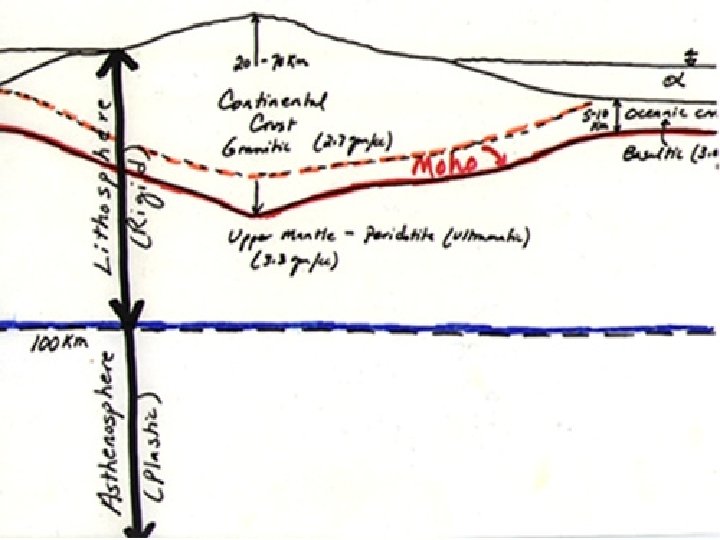 20 - 70 Km
Continental
Crust
Granitic (2.7 gm/cc)
Moho
α
5-10
Km
Oceanic cru
Basaltic (3.0
Upper Mantle - Peridotite (Ultramafic)
(3.3 gm/cc)
Lithosphere
(Rigid)
100 Km
Asthenosphere
(Plastic)